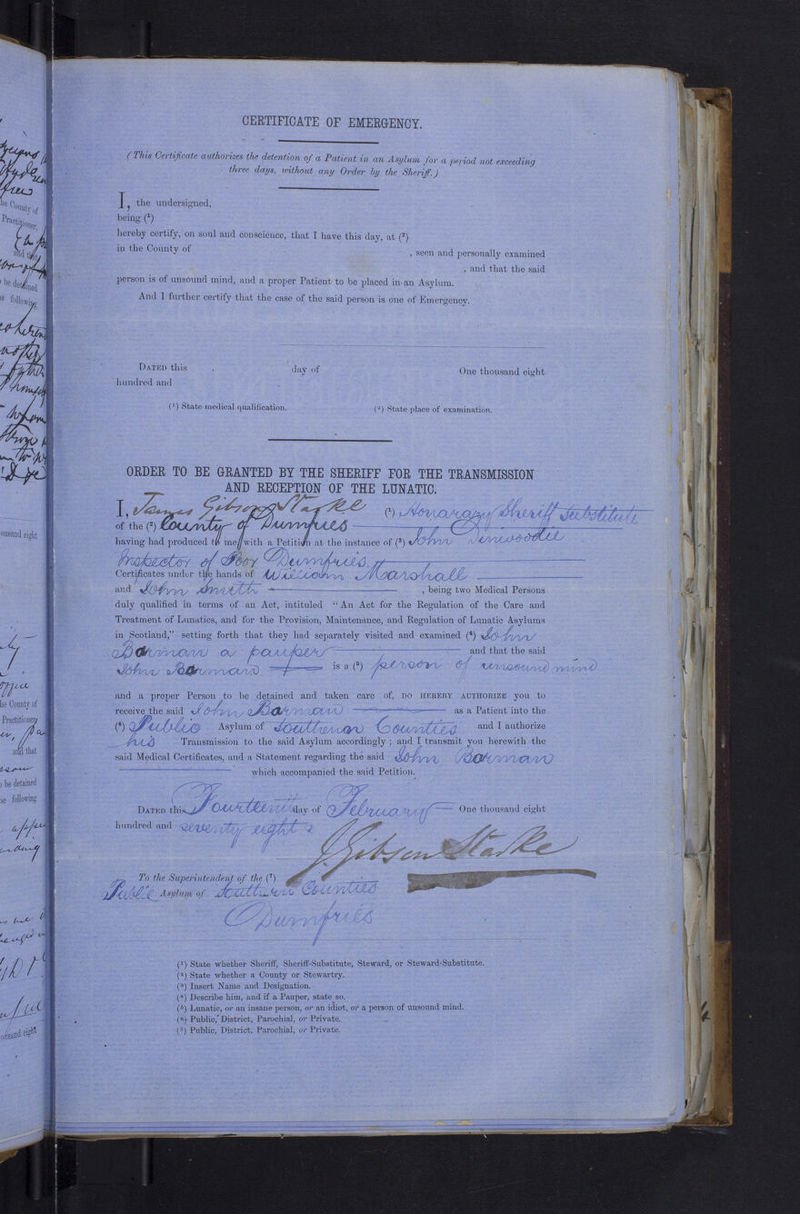 CERTIFICATE OF EMERGENCY.
(This Certificate authorizes the detention of a Patient in an Asylum for a period not exceeding
three days, without any Order by the Sheriff.)
I, the undersigned,
being (1)
hereby certify, on soul and conscience, that I have this day, at (2)
in the County of , seen and personally examined
, and that the said
person is of unsound mind, and a proper Patient to be placed in an Asylum.
And I further certify that the case of the said person is one of Emergency.
DATED this day of One thousand eight
hundred and
(1) State medical qualification. (2) State place of examination.
ORDER TO BE GRANTED BY THE SHERIFF FOR THE TRANSMISSION
AND RECEPTION OF THE LUNATIC.
I, James Gibson Starke (1) Honarary Sheriff Substitute
of the (2) County of Dumfries
having had produced to me with a Petition at the instance of (3) John Dinwoodie
Inspector of Poor Dumfries
Certificates under the hands of William Marshall
and John Smith , being two Medical Persons
duly qualified in terms of an Act, intituled "An Act for the Regulation of the Care and
Treatment of Lunatics, and for the Provision, Maintenance, and Regulation of Lunatic Asylums
in Scotland," setting forth that they had separately visited and examined (4) John
Barman a pauper and that the said
John Barman is a (5) person of unsound mind
and a proper Person to be detained and taken care of, DO HEREBY AUTHORIZE you to
receive the said John Barman as a Patient into the
(6) Public Asylum of Southern Counties and I authorize
his Transmission to the said Asylum accordingly; and I transmit you herewith the
said Medical Certificates, and a Statement regarding the said John Barman
which accompanied the said Petition.
DATED this Fourteenth day of February One thousand eight
hundred and seventy eight
J Gibson Starke
To the Superintendent of the (7)
Public Asylum of Southern Counties
Dumfries
(1) State whether Sheriff, Sheriff-Substitute, Steward, or Steward-Substitute.
(2) State whether a County or Stewartry.
(3) Insert Name and Designation.
(4) Describe him, and if a Pauper, state so.
(5) Lunatic, or an insane person, or an idiot, or a person of unsound mind.
(6) Public, District, Parochial, or Private.
(7) Public, District, Parochial, or Private.